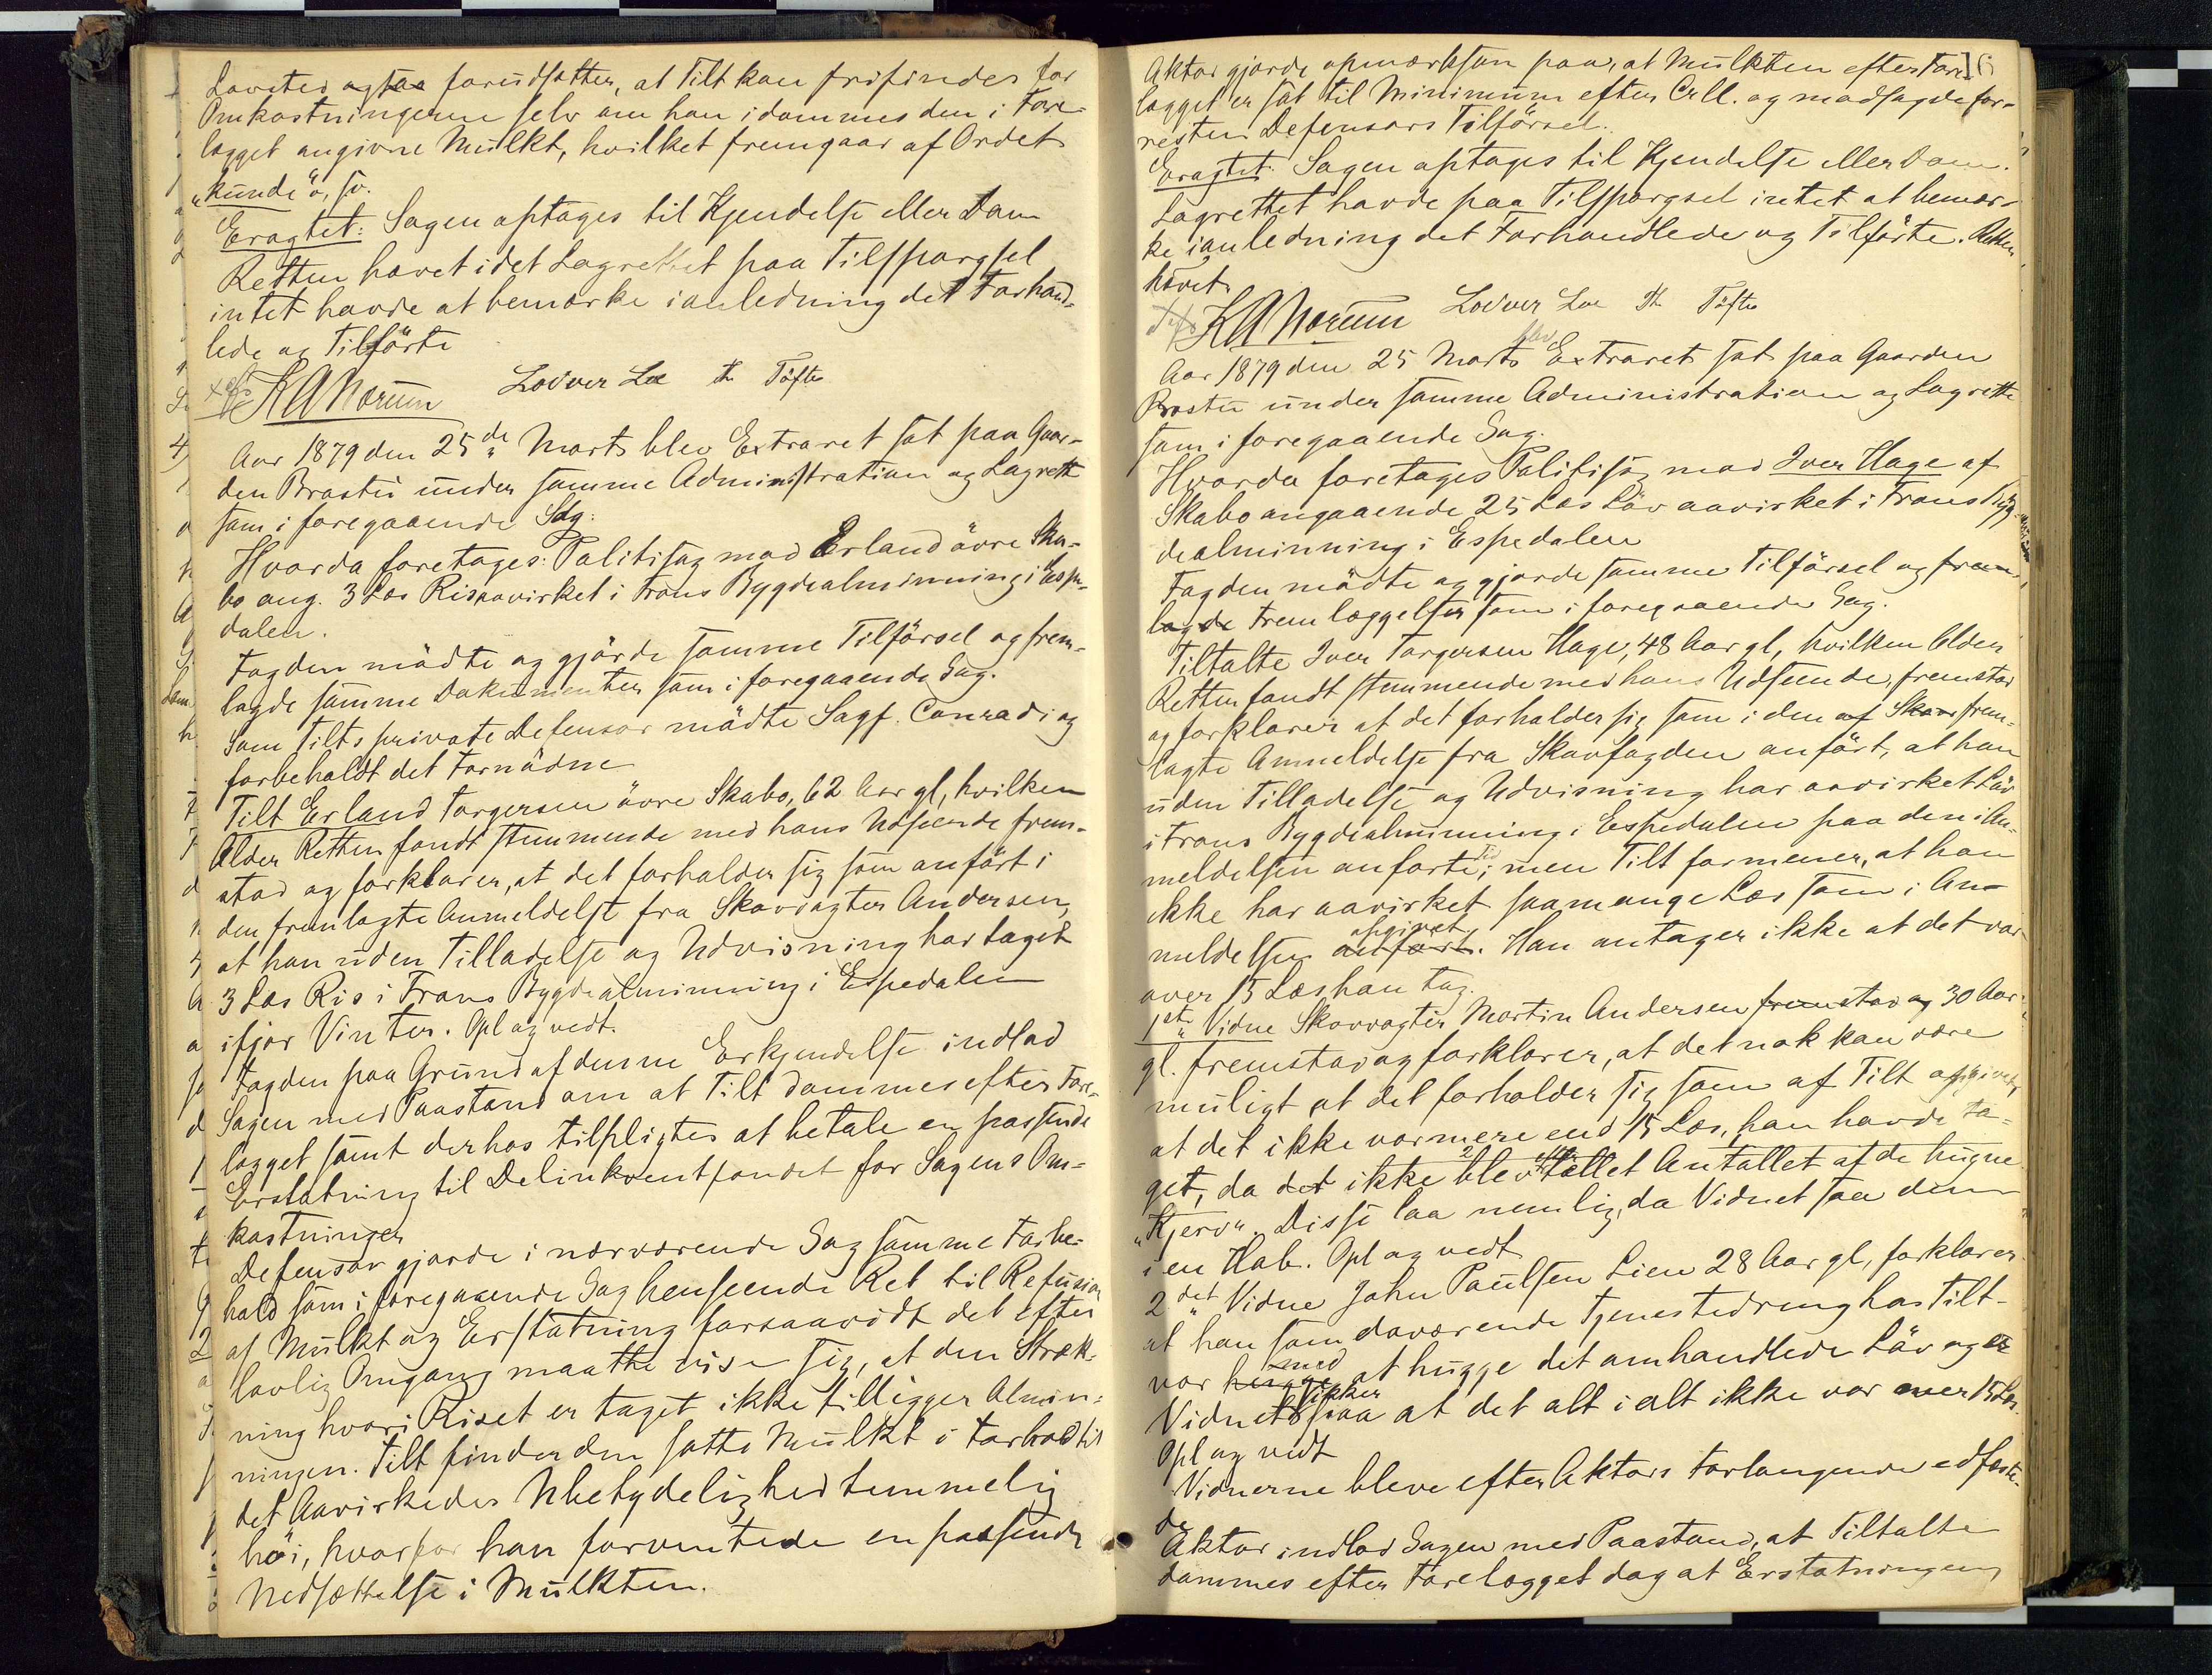 Lovsted og saa forudsætter, at Tilt kan frifindes for
Omkostningerne selv om han idømmes den i Fore-
lægget angivne Mulkt, hvilket fremgaar af Ordet
"kunde" o, sv.
Eragtet: Sagen optages til Kjendelse eller Dom
Retten hævet idet Lagrettet paa Tilspørgsel
intet havde at bemærke ianledning det Forhand-
lede og Tilførte
KANorum Lodver Loe Th Tofte
Aar 1879 den 25de Marts blev Extraret sat paa Gaar-
den Brostu under samme Administration og Lagrett
som i foregaaende Sag.
Hvorda foretages: Politisag mod Erland øvre Ska-
bo ang. 3 Læs Ris aavirket i Frons Bygdealminning i Espe-
dalen.
Fogden mødte og gjorde samme Tilførsel og frem-
lagde samme Dokumenter som i foregaaende Sag.
Som Tilts private Defensor mødte Sagf. Conradi og
forbeholdt det Fornødne
Tilt Erland Torgersen øvre Skabo, 62 Aar gl, hvilken
Alder Retten fandt stemmende med hans Udseende frem-
stod og forklarer, at det forholder sig som anført i
den fremlagte Anmeldelse fra Skovvogter Andersen,
at han uden Tilladelse og Udvisning har taget
3 Læs Ris i Frons Bygdealminning i Espedalen
ifjor Vinter. Opl og vedt.
Fogden paa Grund af denne Erkjendelse indlod
Sagen med Paastand om at Tilt dømmes efter Fore-
lægget samt derhos tilpligtes at betale en passende
Erstatning til Delinkventfondet for Sagens Om-
kostninger
Defensor gjorde i nærværende Sag samme Forbe-
hold som i foregaaende Sag henseende Ret til Refusion
af Mulkt og Erstatning forsaavidt det efter
lovlig Omgang maatte vise sig, at den Stræk-
ning hvori Riset er taget ikke tilligger Almin-
ningen. Tilt finder den satte Mulkt i Forhold til
det Aavirkedes Ubetydelighed temmelig
høi, hvorfor han forventede en passende
Nedsættelse i Mulkten.
Aktor gjorde opmærksom paa, at Mulkten efter Fore-
lægget er sat til Minimum efter Crll. og modsagde for-
resten Defensors Tilførsel.
Eragtet: Sagen optages til Kjendelse eller Dom.
Lagrettet havde paa Tilspørgsel intet at bemær-
ke ianledning det Forhandlede og Tilførte. Retten
hævet
KANorum Lodver Loe Th Tofte
Aar 1879 den 25 Marts blev Extraret sat paa Gaarden
Brostu under samme Administration og Lagrette
som i foregaaende Sag.
Hvorda foretages Politisag mod Iver Hage af
Skabo angaaende 25 Læs Løv aavirket i Frons Byg-
dealminning i Espedalen
Fogden mødte og gjorde samme Tilførsel og frem-
lagde Fremlæggelser som i foregaaende Sag.
Tiltalte Iver Torgersen Hage, 48 Aar gl, hvilken Alder
Retten fandt stemmende med hans Udseende, fremstod
og forklarer at det forholder sig som i den af Skov frem-
lagte Anmeldelse fra Skovfogden anført, at han
uden Tilladelse og Udvisning har aavirket Løv
i Frons Bygdealminning i Espedalen paa den i An-
meldelsen anførte Tid; men Tilt formener, at han
ikke har aavirket saamange Læs som i An-
meldelsen anført opgivet. Han antager ikke at det var
over 15 Læs han tog.
1ste Vidne Skovvogter Martin Andersen fremstod og 30 Aar
gl. fremstod og forklarer, at det nok kan være
muligt at det forholder sig som af Tilt opgivet,
at det ikke var mere end 15 Læs, han havde ta-
get, da det ikke blev tællet Antallet af de hugne
"Kjerv". Disse laa nemlig, da Vidnet saa dem
i en Hab. Opl og vedt
2det Vidne John Paulsen Lien 28 Aar gl, forklarer
at han som daværende Tjenestedreng hos Tilt-
var hugge med at hugge det omhandlede Løv og er
Vidnet sikker paa at det alt i alt ikke var over 15 Læs.
Opl og vedt
Vidnerne bleve efter Aktors Forlangende edfæste-
de
Aktor indlod Sagen med Paastand, at Tiltalte
dømmes efter Forelægget dog at Erstatningen